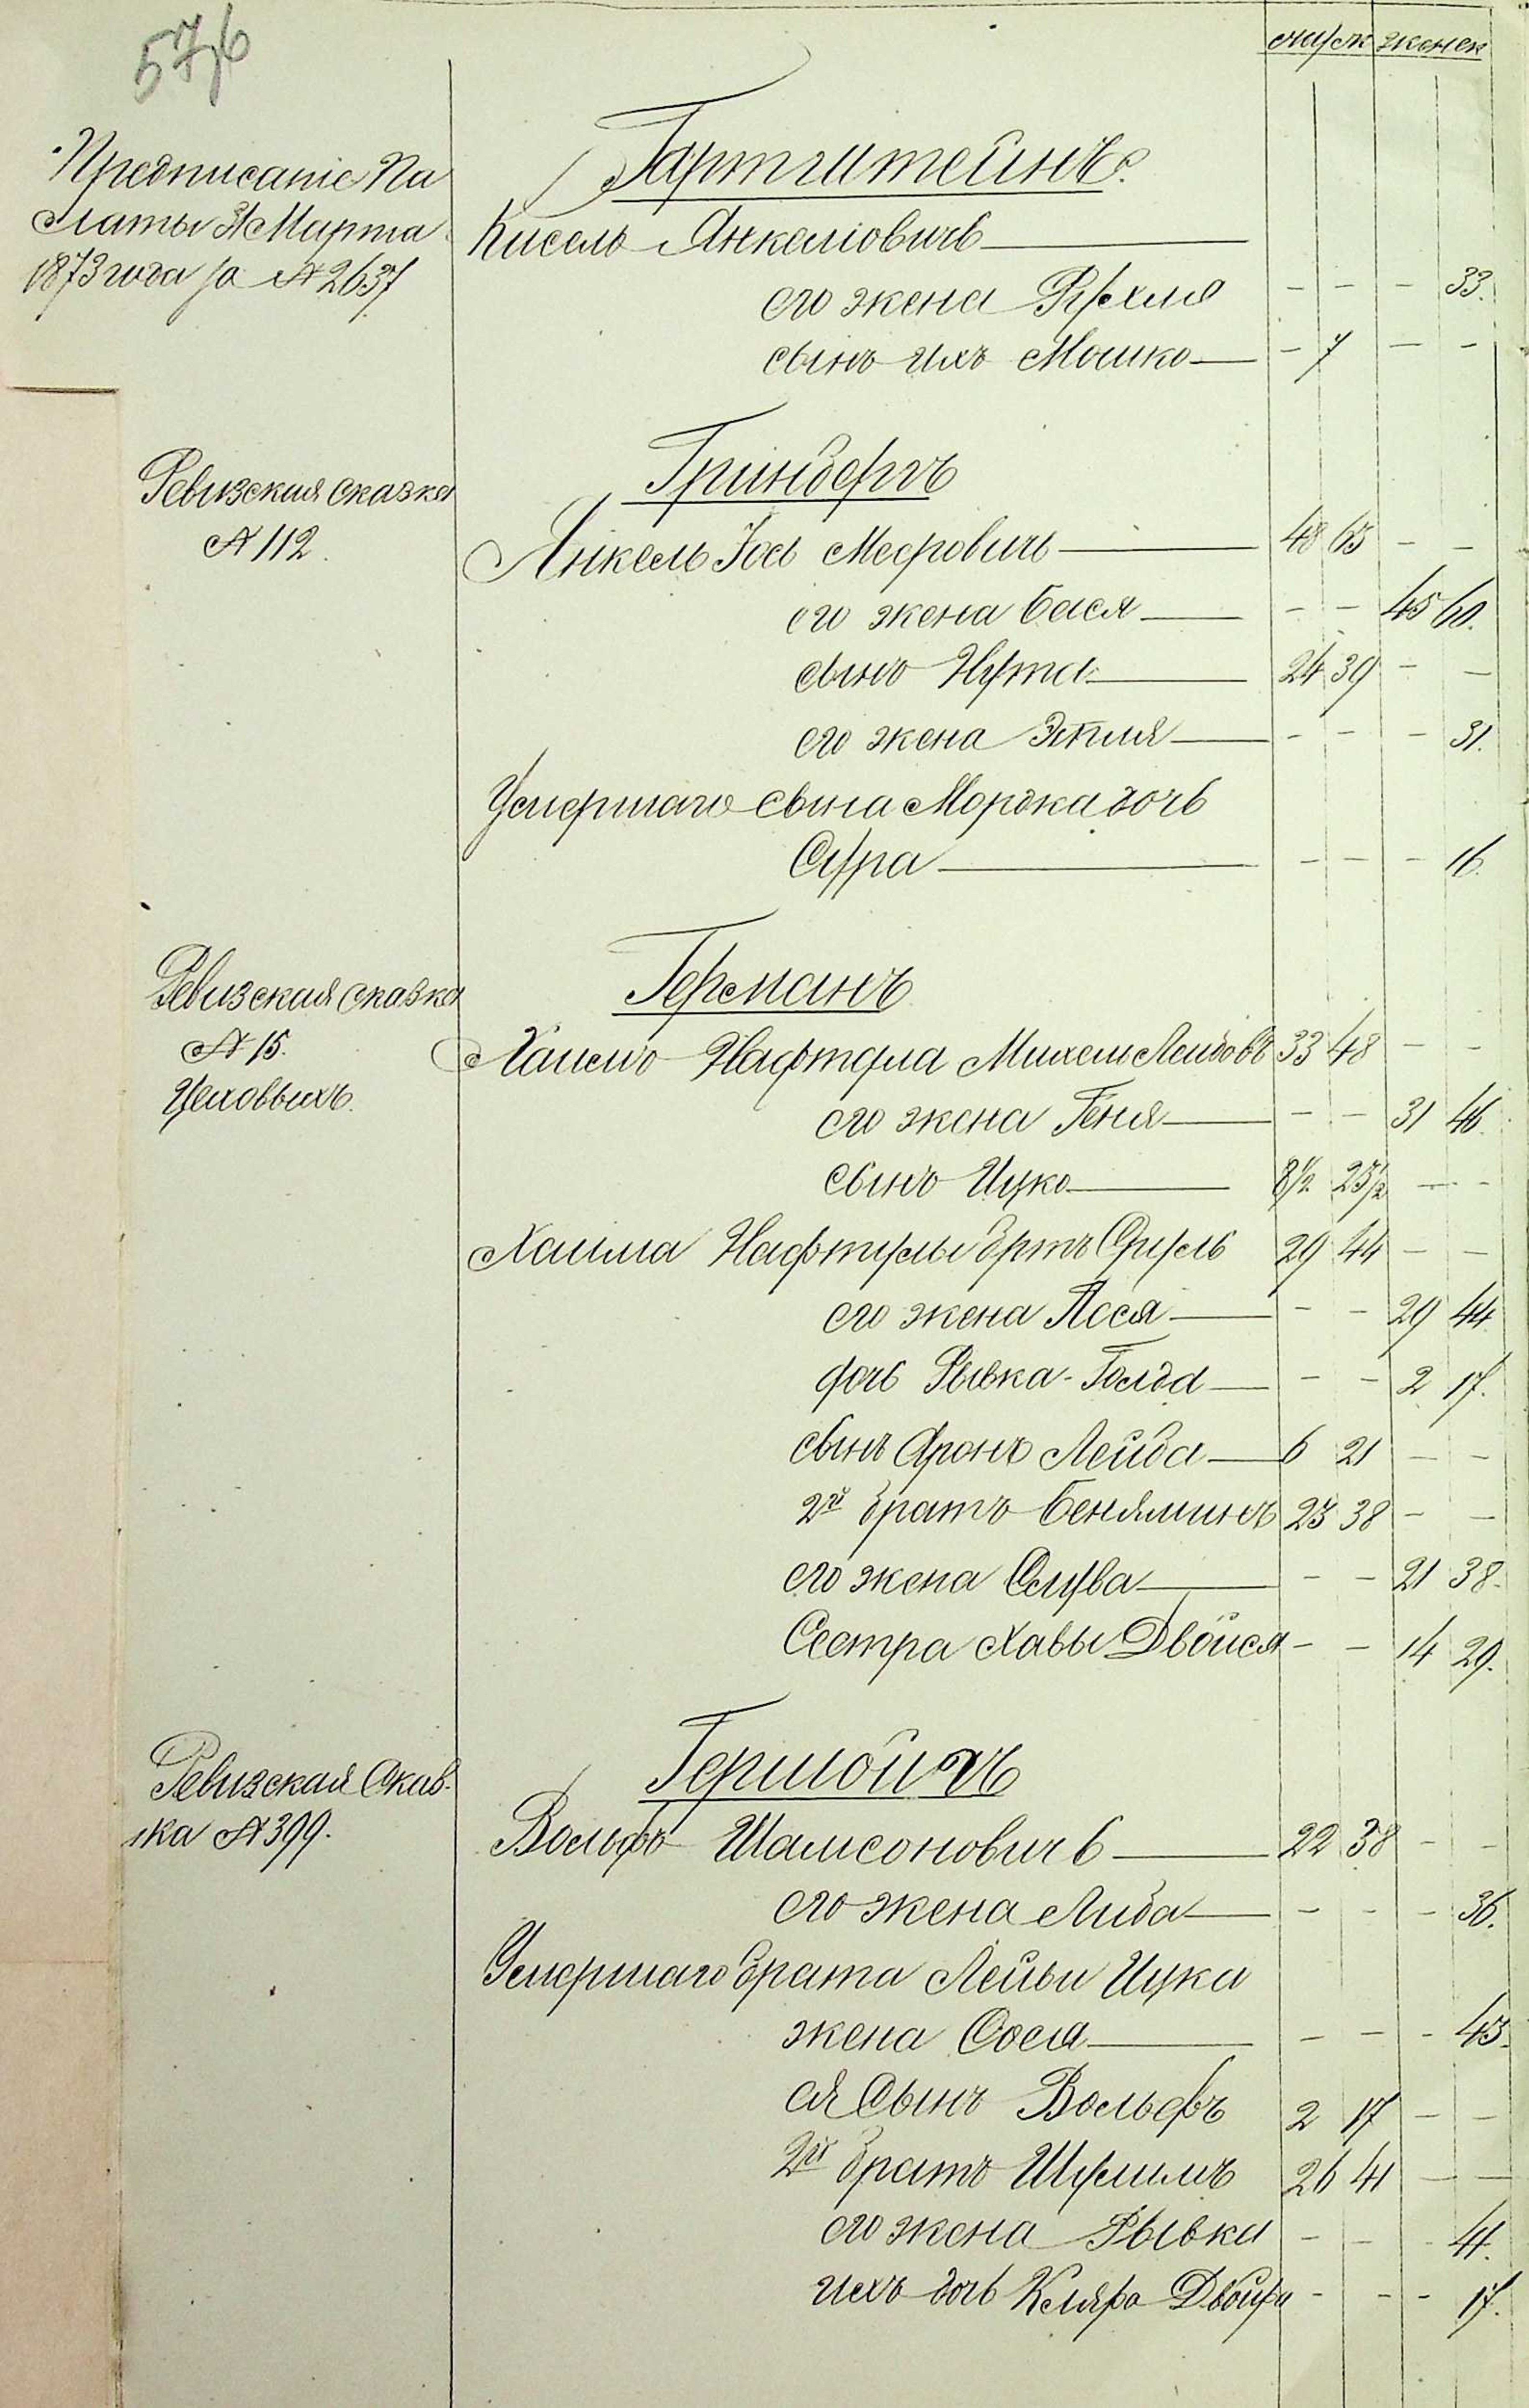 576
муж женск
Предписаніе Па
латы 31 Марта
1873 года за № 2637
Гартштейнъ.
Кисель Янкеліовичъ
его жена Рухля - - - 33.
сынъ ихъ Мошко - 7 - -
Ревизская сказка
№ 112.
Грінбергъ
Янкель Іось Мееровичъ 48 63 - -
его жена Бася - - 45 60.
сынъ Нута 24 39 - -
его жена Этля - - - 31.
Умершаго сына Мордка дочь
Сура - - - 16.
Ревизская сказка
№ 15.
Цеховыхъ.
Германъ
Хаимъ Нафтула Михель Лейбовъ 33 48 - -
его жена Геня - - 31 46.
сынъ Ицко 8½ 23½ - -
Хаима Нафтулы братъ Сруль 29 44 - -
его жена Яся - - 29 44
дочь Рывка-Голда - - 2 17.
сынъ Аронъ Лейба 6 21 - -
2й братъ Беняминъ 23 38 - -
его жена Слува - - 21 38.
Сестра Хавы Двойся - - 14 29.
Ревизская Сказ-
ка № 399.
Гершойхъ
Вольфъ Шамсоновичъ 22 38 - -
его жена Либа - - - 36.
Умершаго брата Лейбы Ицка
жена Сося - - - 43.
ея Сынъ Вольфъ 2 17 - -
2й братъ Шулимъ 26 41 - -
его жена Рывка - - - 41.
ихъ дочь Кляра Двойра - - - 17.